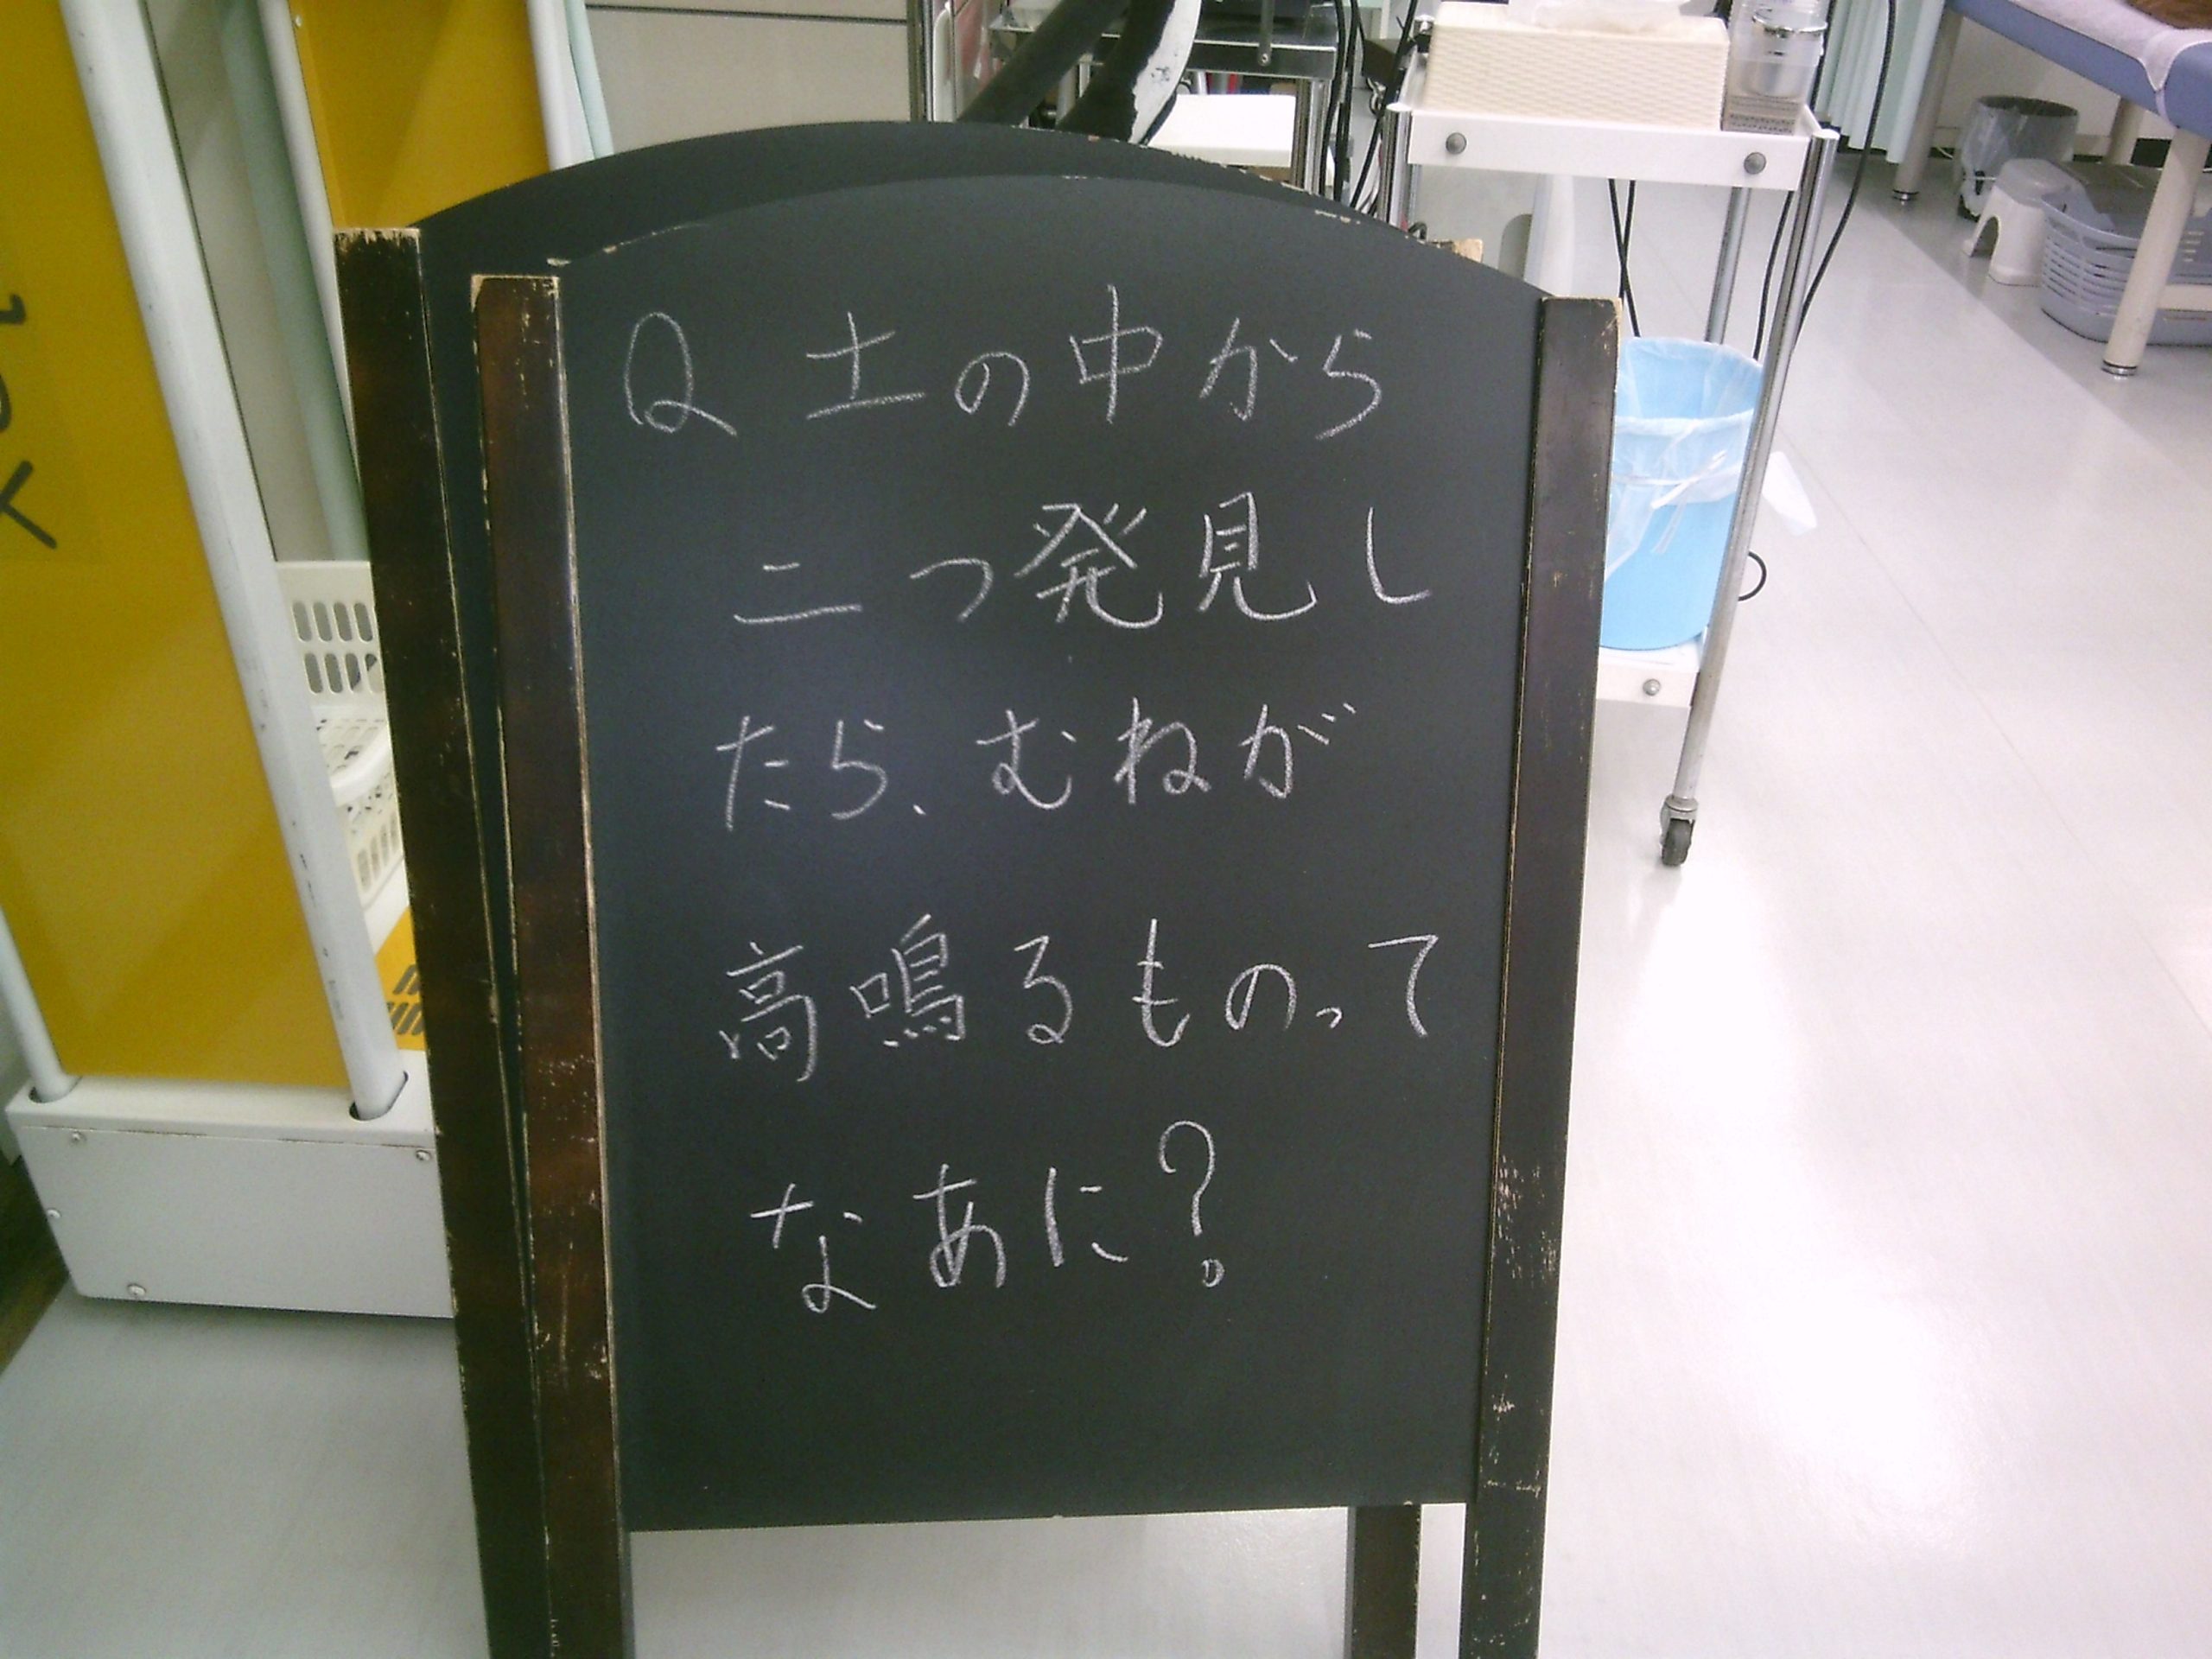 Q 土の中から
二つ発見し
たら、むねが
高鳴るものって
なあに?